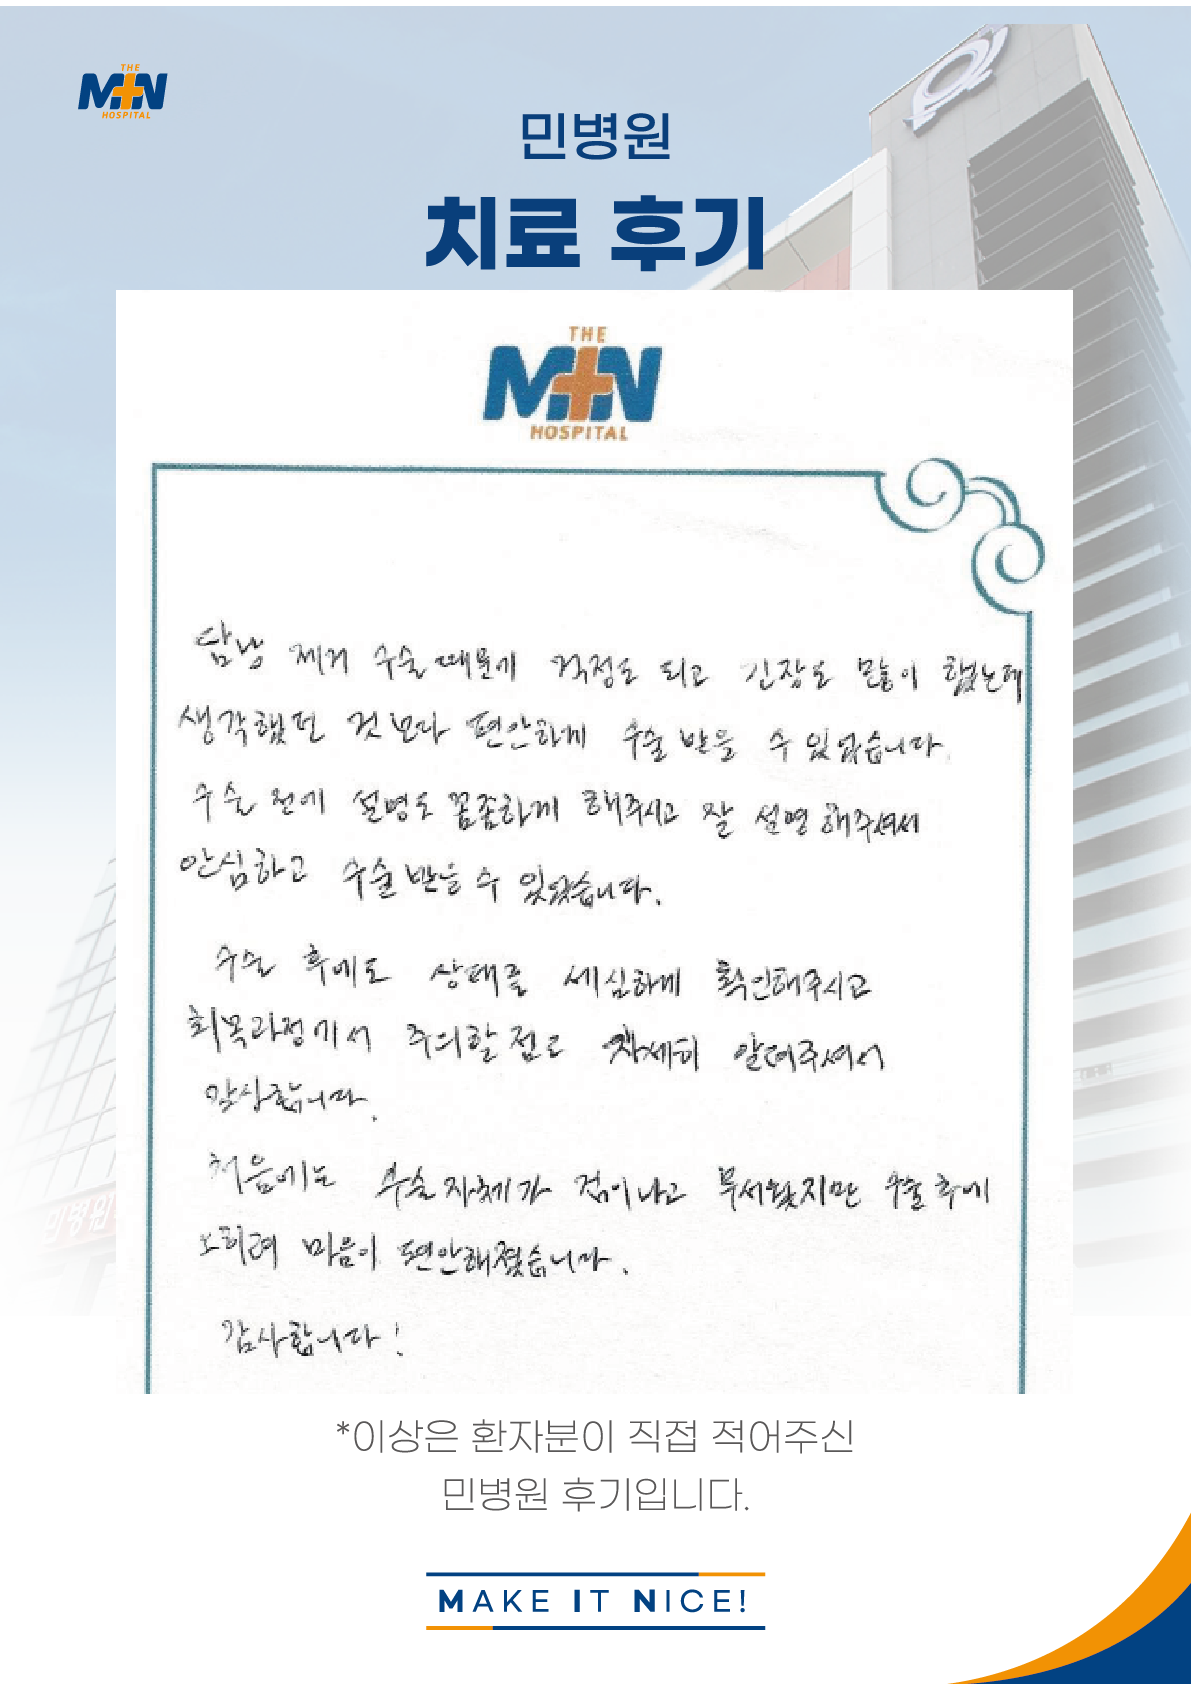 THE
MIN
HOSPITAL
민병원
치료 후기
THE
MIN
HOSPITAL
담낭 제거 수술때문에 걱정도 되고 긴장도 많이 했는데
생각했던 것보다 편안하게 수술 받을 수 있었습니다.
수술 전에 설명도 꼼꼼하게 해주시고 잘 설명해주셔서
안심하고 수술 받을 수 있었습니다.
수술 후에도 상태를 세심하게 확인해주시고
회복과정에서 주의할 점도 자세히 알려주셔서
감사합니다.
처음에는 수술 자체가 겁이나고 무서웠지만 수술 후에
오히려 마음이 편안해졌습니다.
감사합니다!
민병원
*이상은 환자분이 직접 적어주신
민병원 후기입니다.
MAKE IT NICE!